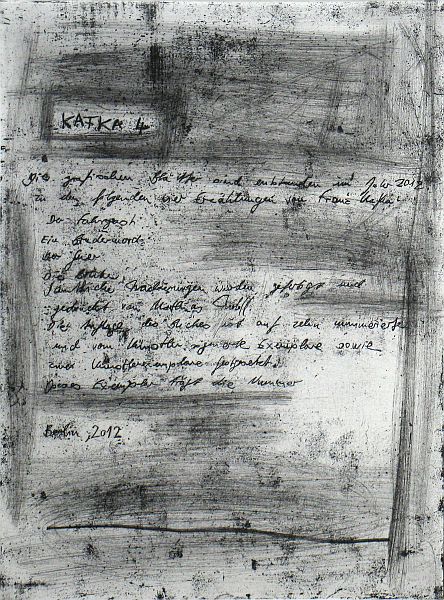 KAFKA 4
Die grafischen Blätter sind entstanden im Jahr 2012
zu den folgenden vier Erzählungen von Franz Kafka:
Der Fahrgast
Ein Brudermord
Der Geier
Die Brücke
Sämtliche Radierungen wurden gefertigt und
gedruckt von Matthias
Die Auflage des Buches ist auf zehn nummerierte
und vom Künstler signierte Exemplare sowie
zwei Künstlerexemplare festgesetzt.
Dieses Exemplar trägt die Nummer
Berlin, 2012